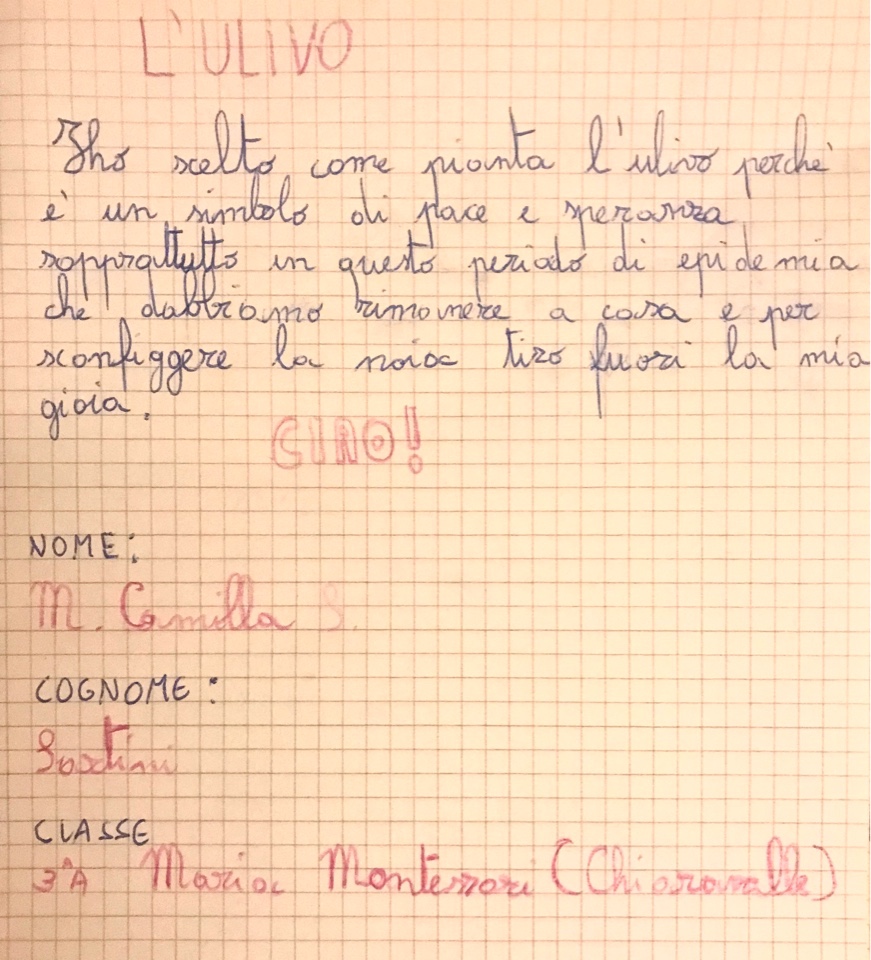 L'ULIVO
Iho scelto come pianta l'ulivo perchè
è un simbolo di pace e speranza
soprattutto in questo periodo di epidemia
che dobbiamo rimanere a casa e per
sconfiggere la noia tiro fuori la mia
gioia.
CIAO!
NOME:
M. Camilla S.
COGNOME:
CLASSE
3^A Maria Montessori (Chiaravalle)